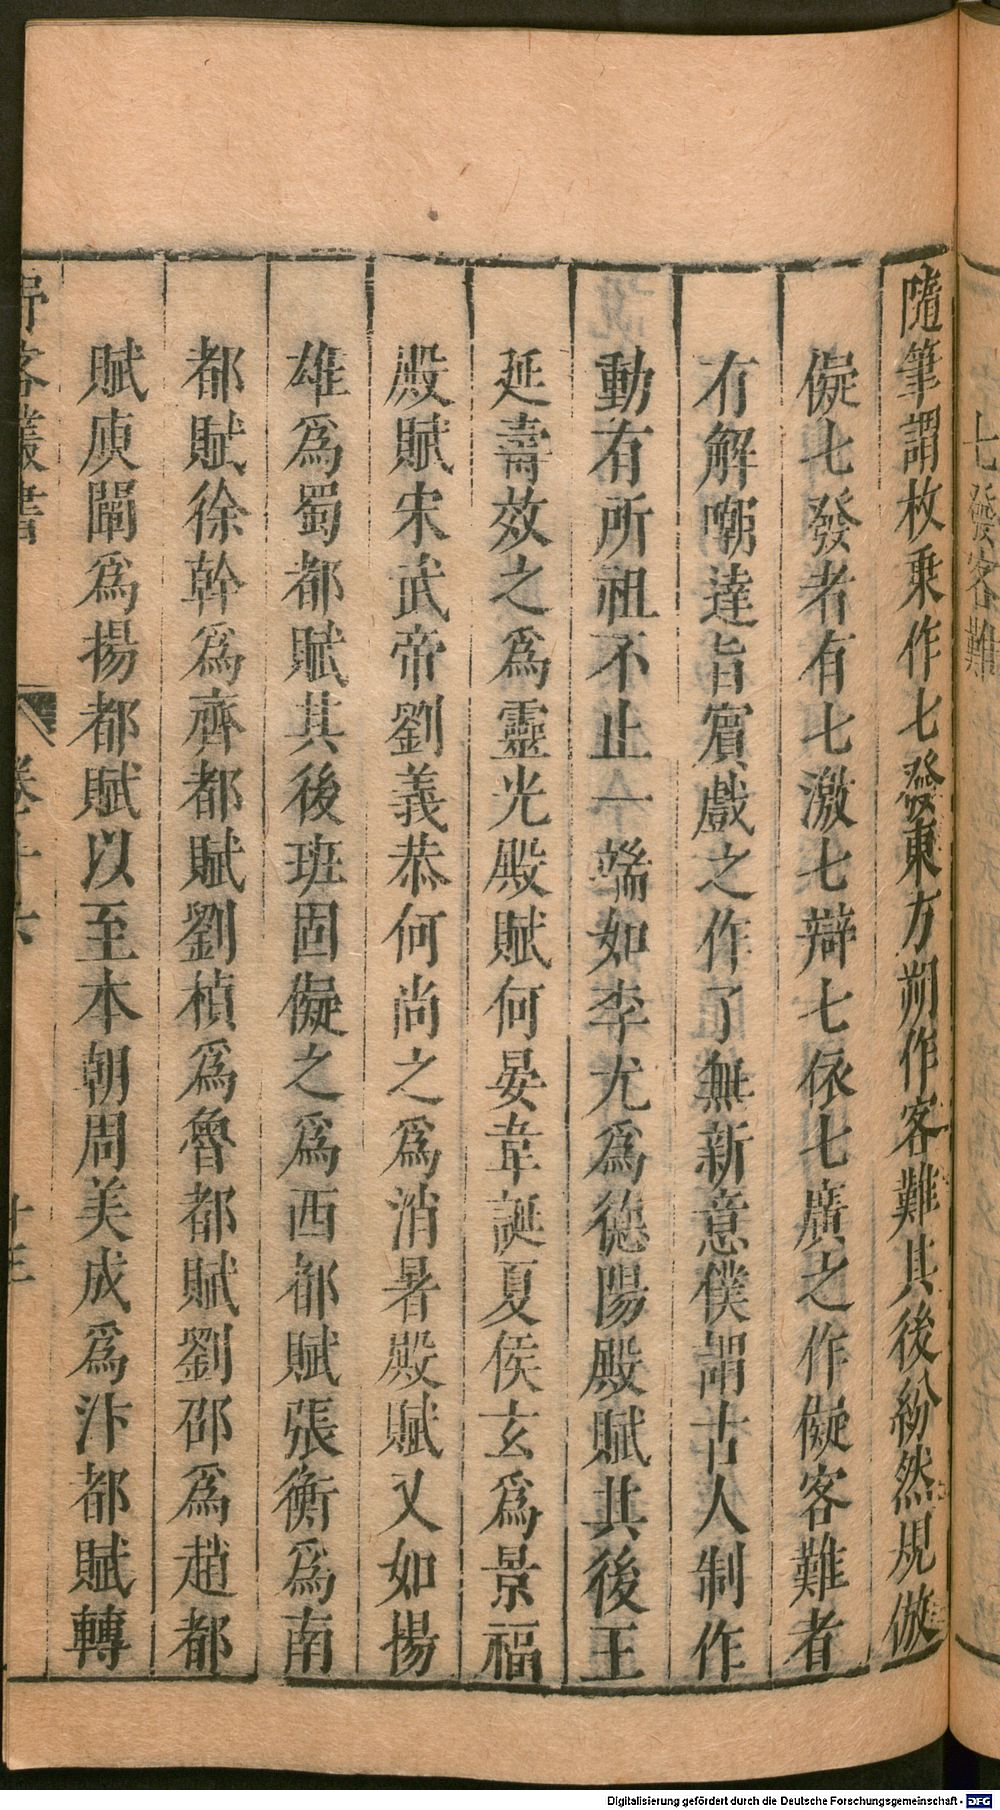 七發客難
隨筆謂枚乗作七發東方朔作客難其後紛然規倣
儗七發者有七激七辯七依七廣之作儗客難者
有解嘲達旨賓戲之作了無新意僕謂古人制作
動有所祖不止一端如李尤為德陽殿賦其後王
延壽效之為靈光殿賦何晏韋誕夏侯玄為景福
殿賦宋武帝劉義恭何尚之為消暑殿賦又如揚
雄為蜀都賦其後班固儗之為西都賦張衡為南
都賦徐幹為齊都賦劉楨為魯都賦劉邵為趙都
賦庾闡為揚都賦以至本朝周美成為汴都賦轉
野客叢書 卷十六 十三
Digitalisierung gefördert durch die Deutsche Forschungsgemeinschaft - DFG